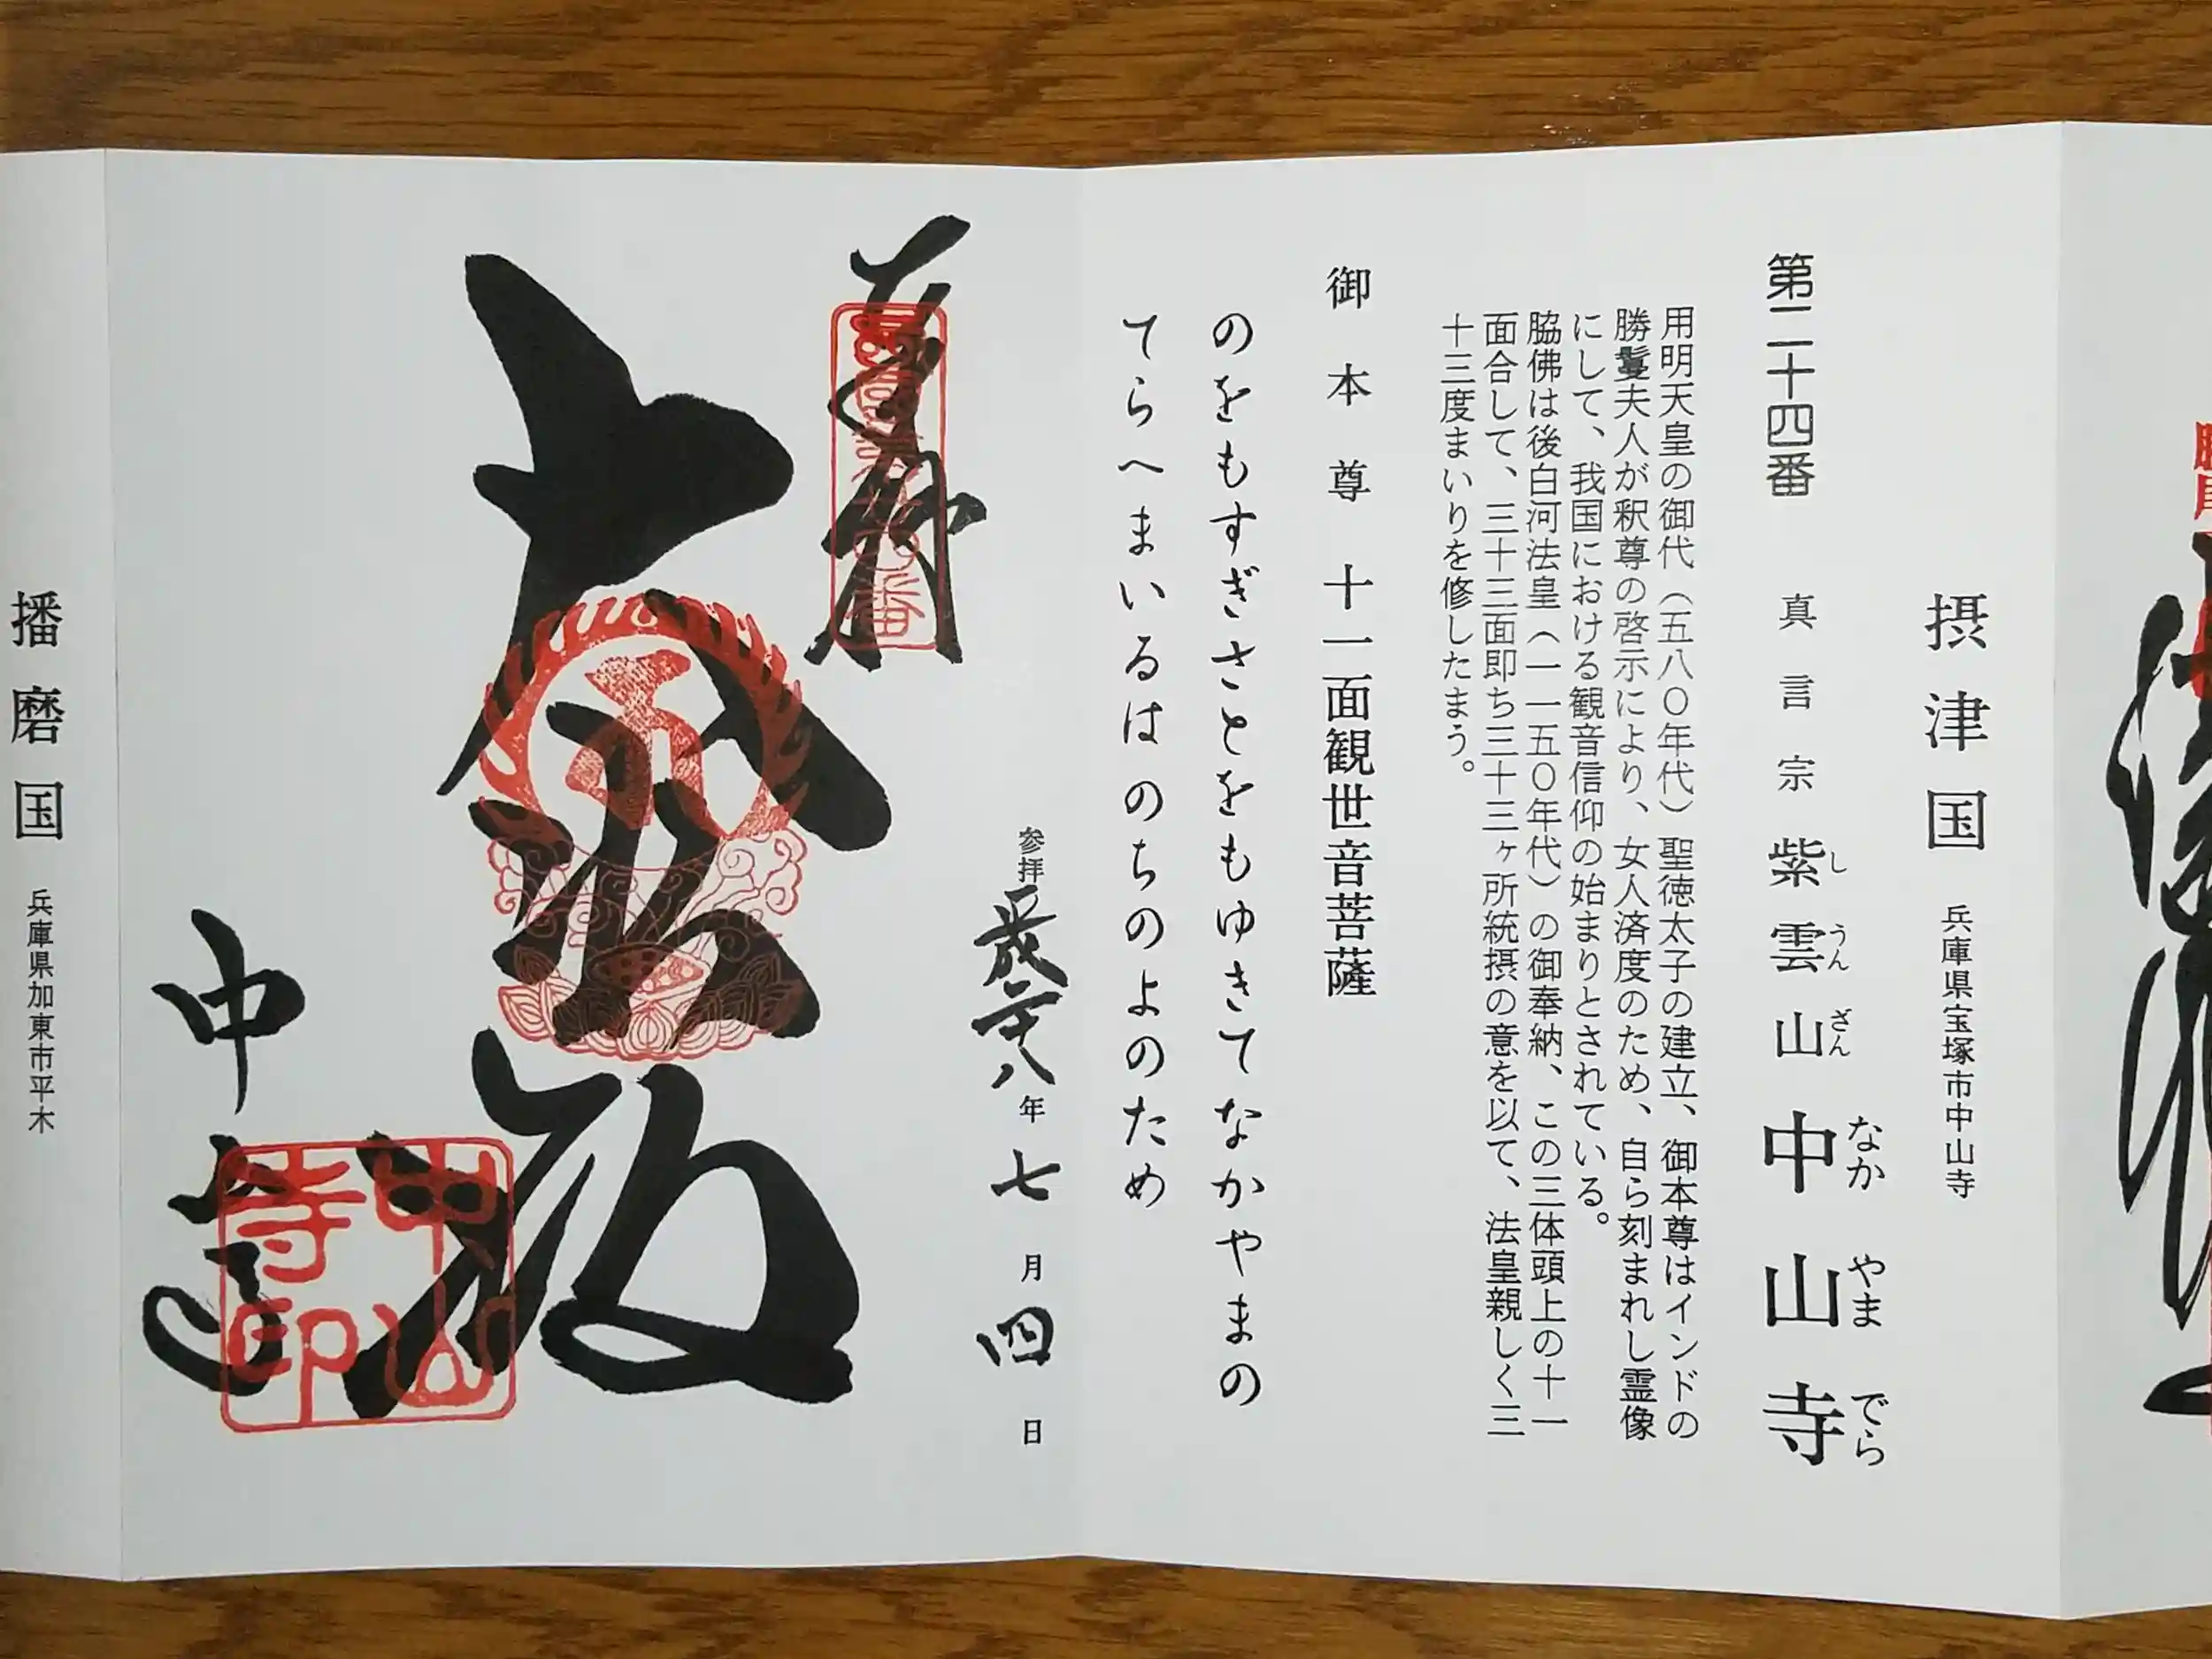 摂津国 兵庫県宝塚市中山寺
第二十四番 真言宗 紫雲山 中山寺
し うん ざん なか やま でら
用明天皇の御代（五八〇年代）聖徳太子の建立、御本尊はインドの
勝鬘夫人が釈尊の啓示により、女人済度のため、自ら刻まれし霊像
にして、我国における観音信仰の始まりとされている。
脇佛は後白河法皇（一一五〇年代）の御奉納、この三体頭上の十一
面合して、三十三面即ち三十三ヶ所統摂の意を以て、法皇親しく三
十三度まいりを修したまう。
御本尊 十一面観世音菩薩
のをもすぎさとをもゆきてなかやまの
てらへまいるはのちのよのため
参拝 平成二十八年七月四日
奉拝
大悲殿
中山寺
中山寺印
播磨国 兵庫県加東市平木